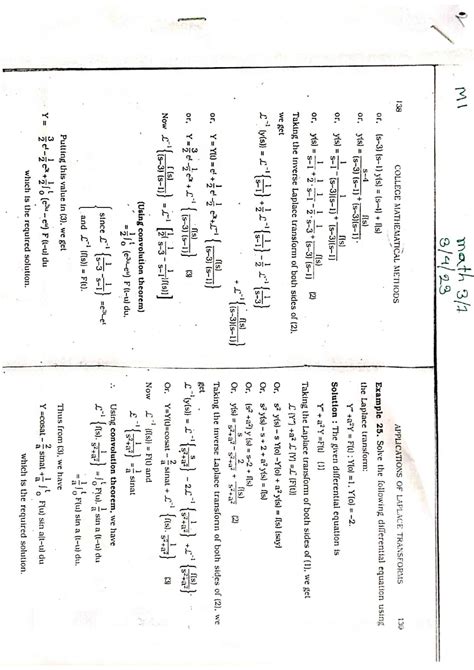 M1
math 3/1
3/4/23
138 COLLEGE MATHEMATICAL METHODS
or, (s–3) (s–1) y(s) = (s–4) + f(s)
or, y(s) = (s–4)/((s–3) (s–1)) + f(s)/((s–3)(s–1))
or, y(s) = 1/(s–1) – 1/((s–3)(s–1)) + f(s)/((s–3)(s–1))
or, y(s) = 1/(s–1) + 1/2 · 1/(s–1) – 1/2 · 1/(s–3) + f(s)/((s–3) (s–1)) (2)
Taking the inverse Laplace transform of both sides of (2),
we get
ℒ⁻¹ {y(s)} = 3/2 ℒ⁻¹ {1/(s–1)} – 1/2 ℒ⁻¹ {1/(s–3)}
+ ℒ⁻¹ {f(s)/((s–3)(s–1))}
or, Y = Y(t) = eᵗ + 1/2 eᵗ – 1/2 e³ᵗ + ℒ⁻¹ {f(s)/((s–3) (s–1))}
or, Y = 3/2 eᵗ – 1/2 e³ᵗ + ℒ⁻¹ {f(s)/((s–3) (s–1))} (3)
Now ℒ⁻¹ {f(s)/((s–3) (s–1))} = ℒ⁻¹ [1/2 {1/(s–3) – 1/(s–1)} f(s)]
(Using convolution theorem)
= 1/2 ∫₀ᵗ (e³ᵘ–eᵘ) F (t–u) du.
{ since ℒ⁻¹ {1/(s–3) – 1/(s–1)} = e³ᵗ–eᵗ
and ℒ⁻¹ {f(s)} = F(t).
Putting this value in (3), we get
Y = 3/2 eᵗ – 1/2 e³ᵗ + 1/2 ∫₀ᵗ (e³ᵘ – eᵘ) F (t–u) du
which is the required solution.
APPLICATIONS OF LAPLACE TRANSFORMS 139
Example 25. Solve the following differential equation using
the Laplace transform:
Y″+a²Y = F(t) ; Y(0) = 1, Y′(0) = –2.
Solution : The given differential equation is
Y″ + a²Y =F(t) (1)
Taking the Laplace transform of both sides of (1), we get
ℒ {Y″} +a² ℒ {Y} = ℒ {F(t)}
Or, s² y(s) – s Y(0) –Y′(0) + a² y(s) = f(s) (say)
Or, s² y(s) – s + 2 + a² y(s) = f(s)
Or, (s² +a²) y (s) = s–2 + f(s)
Or, y(s) = s/(s²+a²) – 2/(s²+a²) + f(s)/(s²+a²) (2)
Taking the inverse Laplace transform of both sides of (2), we
get
ℒ⁻¹{y(s)} = ℒ⁻¹ {s/(s²+a²)} – 2ℒ⁻¹ {1/(s²+a²)} + ℒ⁻¹ {f(s)/(s²+a²)}
Or, Y=Y(t)=cosat – 2/a sinat + ℒ⁻¹ {f(s). 1/(s²+a²)} (3)
Now ℒ⁻¹ {f(s)} = F(t) and
ℒ⁻¹ {1/(s²+a²)} = 1/a sinat
∴ Using convolution theorem, we have
ℒ⁻¹ {f(s). 1/(s²+a²)} = ∫₀ᵗ F(u) 1/a sin a (t–u) du
= 1/a ∫₀ᵗ F(u) sin a (t–u) du.
Thus from (3), we have
Y =cosat – 2/a sinat + 1/a ∫₀ᵗ F(u) sin a(t–u) du
which is the required solution.